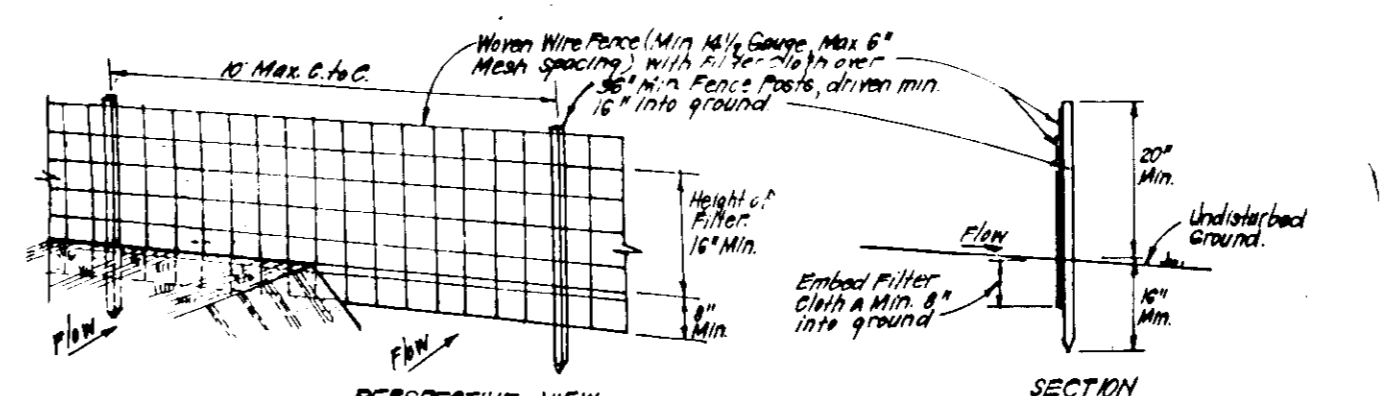 Woven Wire Fence (Min 14 1/2 Gauge, Max 6"
Mesh Spacing) with Filter Cloth over
36" Min. Fence Posts, driven min.
16" into ground
10' Max. C. to C.
Height of
Filter.
16" Min.
8"
Min.
Flow
Flow
PERSPECTIVE VIEW
20"
Min.
Undisturbed
Ground.
Flow
Embed Filter
Cloth a Min. 8"
into ground
16"
Min.
SECTION